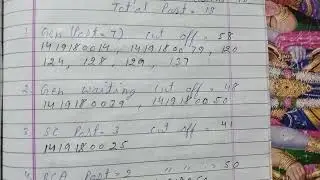 Total Post = 18
1 Gen (Post = 7) Cut off = 58
1419180014, 1419180079, 120
124, 128, 129, 137
2 Gen waiting Cut off = 48
1419180039, 1419180050
3 SC Post = 3 Cut off = 41
1419180025
4 BCA Post = 2 " " = 50